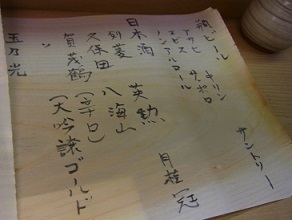 瓶ビール キリン サントリー
アサヒ サッポロ
ヱビス
ノンアルコール
日本酒 英勲 月桂冠
剣菱
久保田 八海山
賀茂鶴 (辛口)
〃 (大吟醸ゴールド)
玉乃光